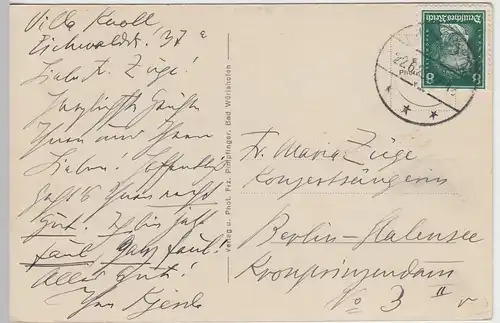 Villa Knoll,
Eichwaldstr. 37a
Liebe Fr. Züge!
Herzlichste Grüße
Ihnen und Ihren
Lieben! Hoffentlich
geht's Ihnen recht
gut. Ich bin jetzt
faul ganz faul!
Alles Gute!
Ihre
Verlag u. Phot. Frz. Pimpfinger, Bad Wörishofen
Deutsches Reich
8 8
22.6.
Fr. Maria Züge
Konzertsängerin
Berlin-Halensee
Kronprinzendam
No 3 II